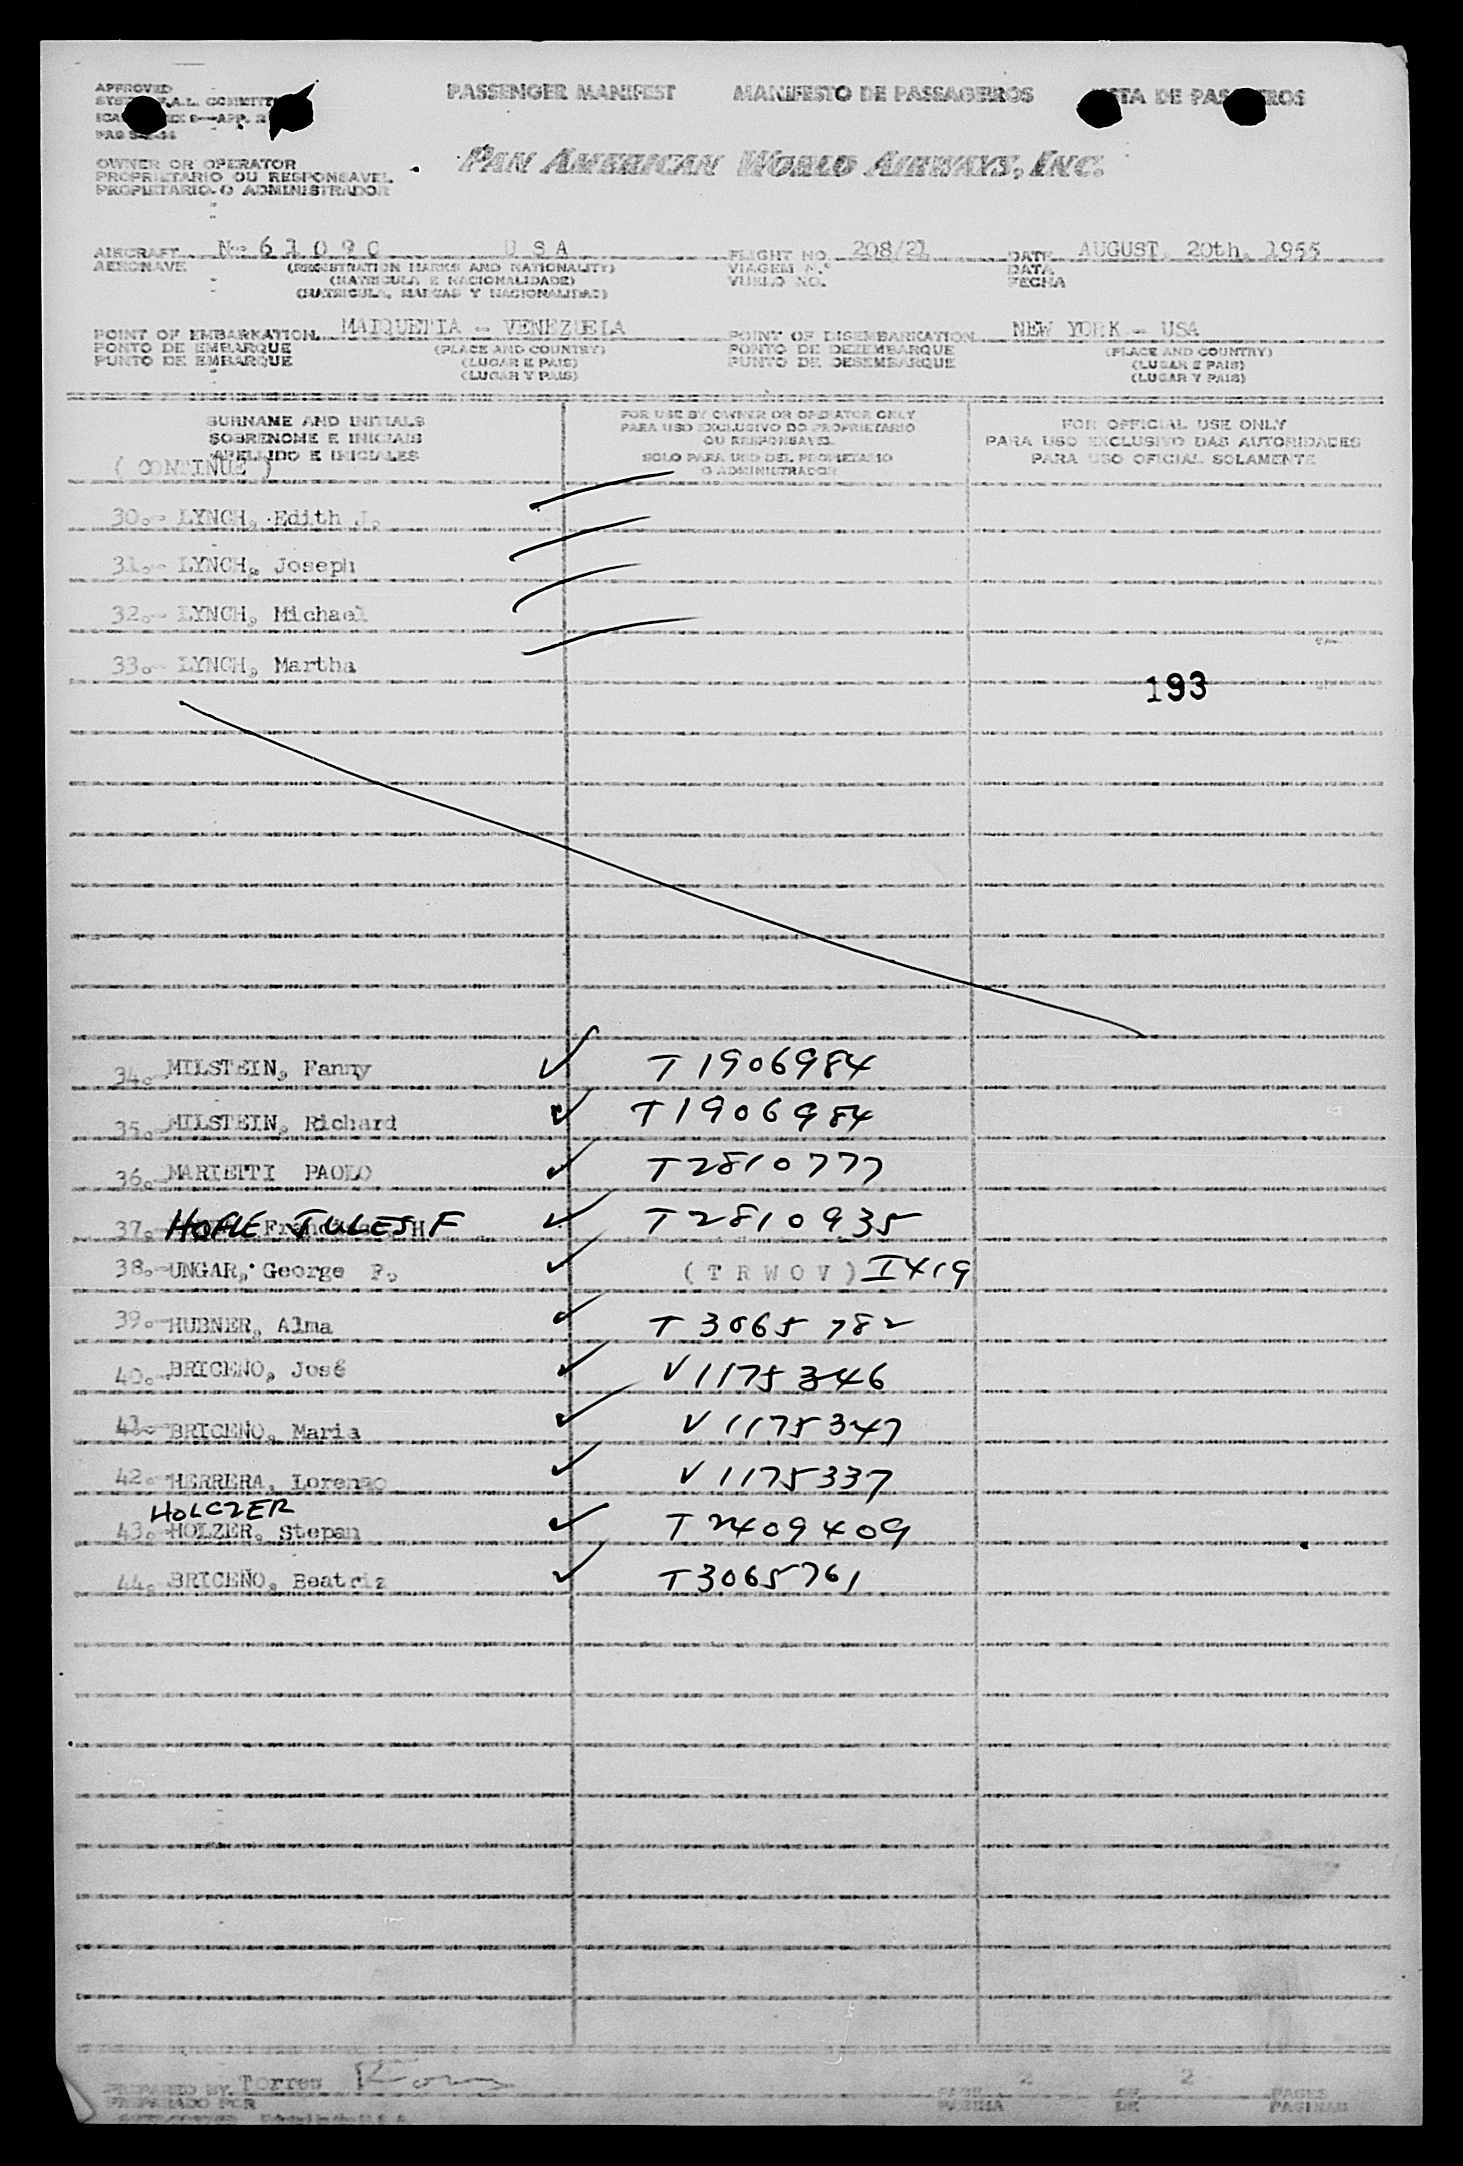 APPROVED PASSENGER MANIFEST MANIFESTO DE PASSAGEIROS LISTA DE PASAJEROS
OWNER OR OPERATOR
PROPRIETARIO OU RESPONSAVEL
PROPIETARIO O ADMINISTRADOR
PAN AMERICAN WORLD AIRWAYS, INC.
AIRCRAFT N-61090 USA FLIGHT NO. 208/21 DATE AUGUST, 20th, 1955
AERONAVE (REGISTRATION MARKS AND NATIONALITY) VIAGEM N.º DATA
(MATRICULA E NACIONALIDADE) VUELO NO. FECHA
(MATRICULA, MARCAS Y NACIONALIDAD)
POINT OF EMBARKATION MAIQUETIA - VENEZUELA POINT OF DISEMBARKATION NEW YORK - USA
PONTO DE EMBARQUE (PLACE AND COUNTRY) PONTO DE DEZEMBARQUE (PLACE AND COUNTRY)
PUNTO DE EMBARQUE (LUGAR E PAIS) PUNTO DE DESEMBARQUE (LUGAR E PAIS)
(LUGAR Y PAIS) (LUGAR Y PAIS)
SURNAME AND INITIALS FOR USE BY OWNER OR OPERATOR ONLY FOR OFFICIAL USE ONLY
SOBRENOME E INICIAIS PARA USO EXCLUSIVO DO PROPRIETARIO OU RESPONSAVEL PARA USO EXCLUSIVO DAS AUTORIDADES
APELLIDO E INICIALES SOLO PARA USO DEL PROPIETARIO O ADMINISTRADOR PARA USO OFICIAL SOLAMENTE
( CONTINUE )
30.- LYNCH, Edith J.
31.- LYNCH, Joseph
32.- LYNCH, Michael
33.- LYNCH, Martha
193
34.- MILSTEIN, Fanny T1906984
35.- MILSTEIN, Richard T1906984
36.- MARIETTI PAOLO T2810777
37.- HOFLE JULES F T2810935
38.- UNGAR, George P. ( T R W O V ) I419
39.- HUBNER, Alma T3065782
40.- BRICEÑO, José V1175346
41.- BRICEÑO, Maria V1175347
42.- HERRERA, Lorenzo V1175337
HOLCZER
43.- HOLZER, Stepan T2409409
44.- BRICEÑO, Beatriz T3065761
PREPARED BY Torres PAGE 2 OF 2 PAGES
PREPARADO POR PAGINA DE PAGINAS